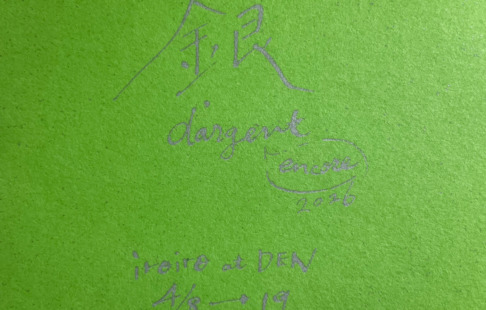 銀
d'argent
encore
2020
iroiro at DEN
4/8 → 19